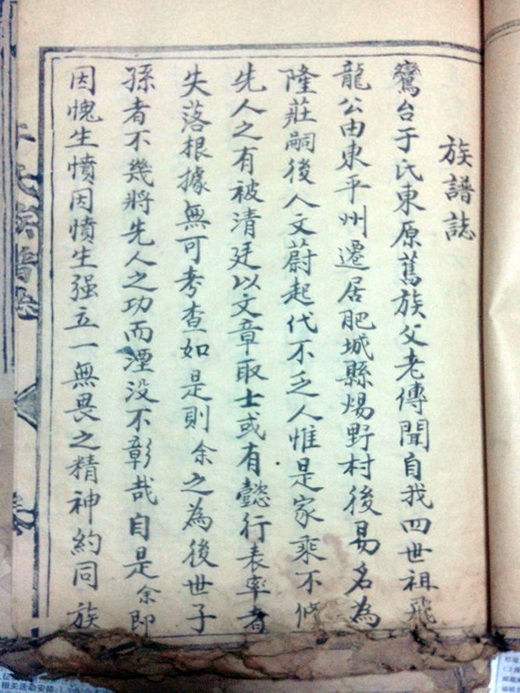 族譜誌
鸞台于氏東原舊族父老傳聞自我四世祖飛
龍公由東平州遷居肥城縣焬野村後易名為
隆莊嗣後人文蔚起代不乏人惟是家乘不修
先人之有被清廷以文章取士或有懿行表率者
失落根據無可考查如是則余之為後世子
孫者不幾將先人之功而湮没不彰哉自是余即
因愧生憤因憤生强立一無畏之精神約同族
于氏族譜
相关活动安排